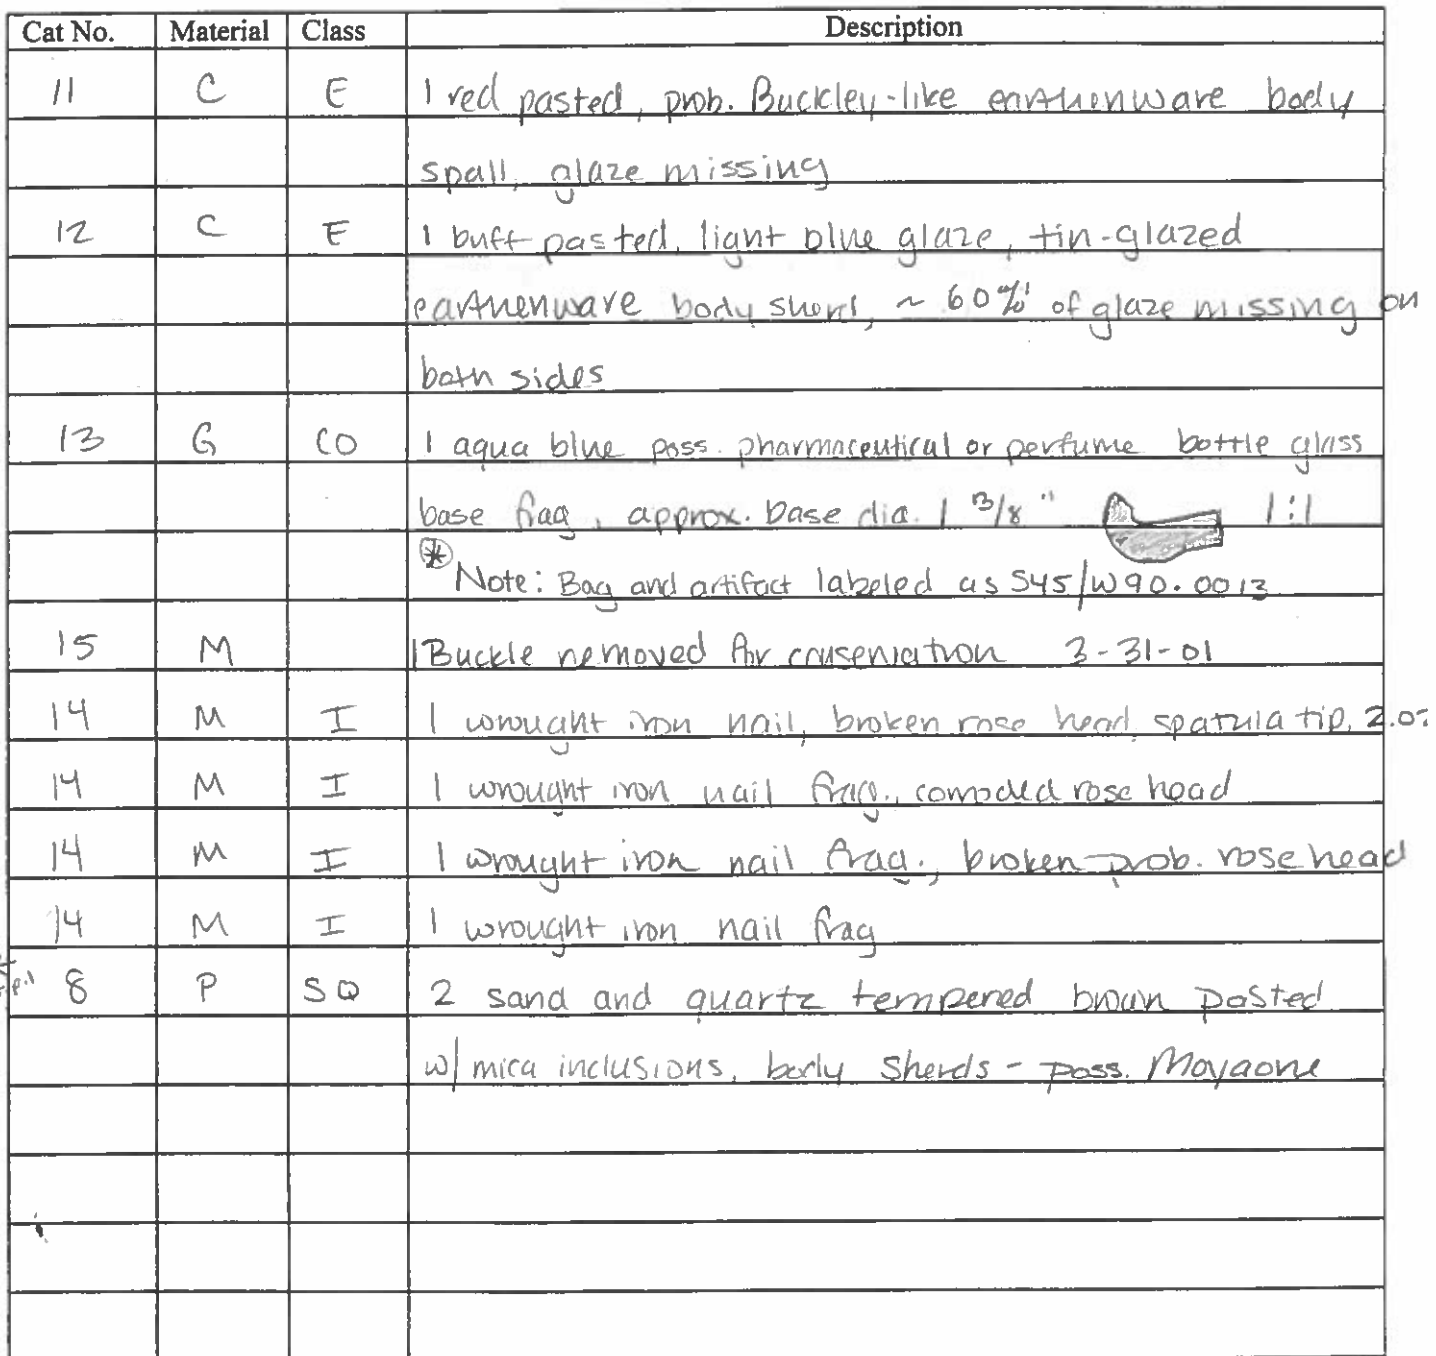 Cat No. Material Class Description
11 C E 1 red pasted, prob. Buckley-like earthenware body
spall, glaze missing
12 C E 1 buff pasted, light blue glaze, tin-glazed
earthenware body sherd, ~ 60% of glaze missing on
both sides
13 G CO 1 aqua blue poss. pharmaceutical or perfume bottle glass
base frag, approx. base dia. 1 3/8" 1:1
* Note: Bag and artifact labeled as S45/W90.0013
15 M 1 Buckle removed for conservation 3-31-01
14 M I 1 wrought iron nail, broken rose head, spatula tip,
14 M I 1 wrought iron nail frag., corroded rose head
14 M I 1 wrought iron nail frag., broken prob. rose head
14 M I 1 wrought iron nail frag
p.1 8 P SQ 2 sand and quartz tempered brown pasted
w/ mica inclusions, body sherds - poss. Moyaone